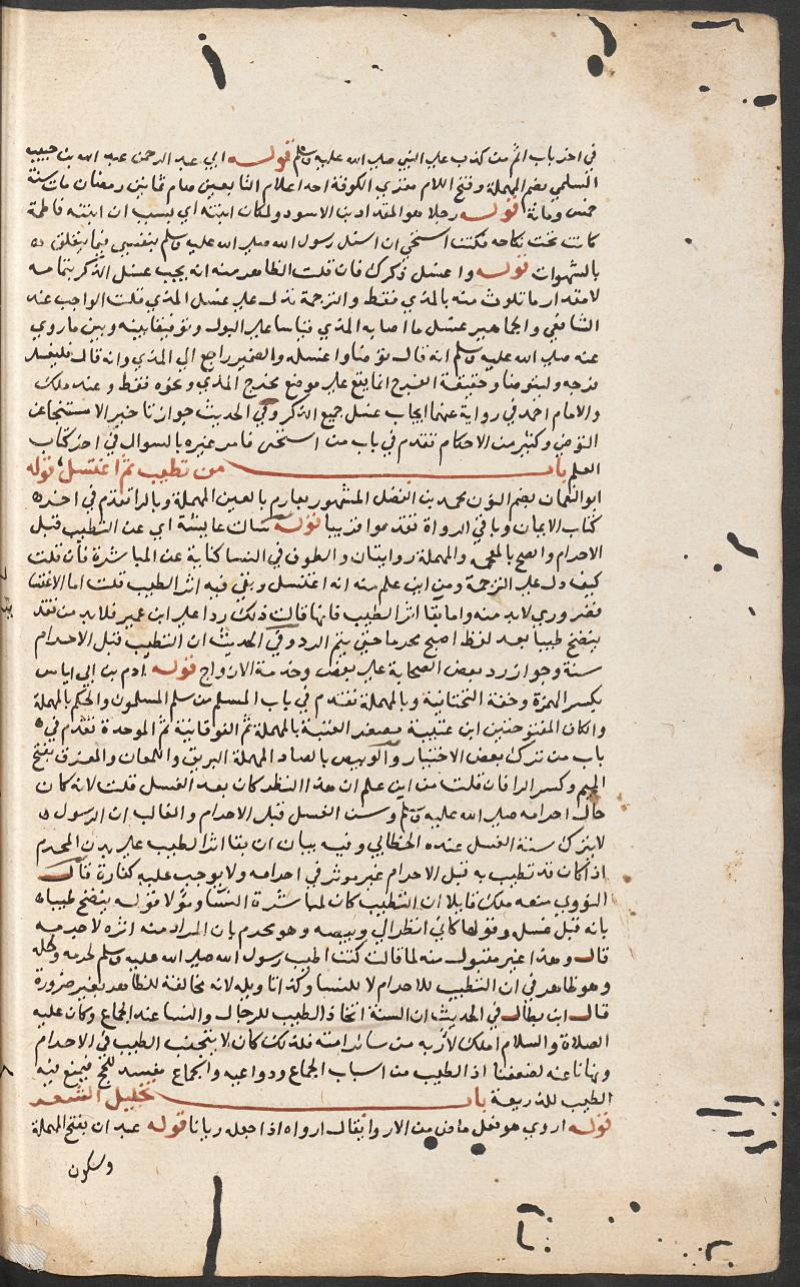 في اخر باب اثم من كذب على النبي صلى الله عليه وسلم قوله ابي عبد الرحمن عبد الله بن حبيب
السلمي بضم المهملة وفتح اللام مقري الكوفة احد اعلام التابعين صام ثمانين رمضان مات سنة
خمس ومائة قوله رجلا هو المقداد بن الاسود ولمكان ابنته اي بسبب ان ابنته فاطمة
كانت تحت نكاحه فكنت استحي ان اسئل رسول الله صلى الله عليه وسلم بنفسي فيما يتعلق
بالشهوات قوله واغسل ذكرك فان قلت الظاهر منه انه يجب غسل الذكر بتمامه
لا مقدار ما تلوث منه بالمذي فقط والترجمة تدل على غسل المذي قلت الواجب عند
الشافعي والجماهير غسل ما اصابه المذي قياسا على البول وتوفيقا بينه وبين ما روي
عنه صلى الله عليه وسلم انه قال توضا واغسله والضمير راجع الى المذي وانه قال فليغسل
فرجه وليتوضا وحقيقة الفرج انما يقع على موضع مخرج المذي ونحوه فقط وعند ملك
والامام احمد في رواية عنهما ايجاب غسل جميع الذكر وفي الحديث جواز تاخير الاستنجا عن
التوضي وكثير من الاحكام تقدم في باب من استحى فامر غيره بالسوال في اخر كتاب
العلم باب من تطيب ثم اغتسل قوله
ابو النعمان بضم النون محمد بن الفضل المشهور بعارم بالعين المهملة وبالرا تقدم في اخر
كتاب الايمان وباقي الرواة تقدموا قريبا قوله سالت عايشة اي عن التطيب قبل
الاحرام وانضح بالمعجمة والمهملة روايتان والطوف في النسا كناية عن المباشرة فان قلت
كيف دل على الترجمة ومن اين علم منه انه اغتسل وبقي فيه اثر الطيب قلت اما الاغتسا
فضروري لابد منه واما بقا اثر الطيب فانها قالت ذلك ردا على ابن عمر فلابد من تقدير
ينضح طيبا بعد لفظ اصبح محرما حتى يتم الرد وفي الحديث ان التطيب قبل الاحرام
سنة وجواز رد بعض الصحابة على بعض وخدمة الازواج قوله ادم بن ابي اياس
بكسر الهمزة وخفة التحتانية وبالمهملة تقدم في باب المسلم من سلم المسلمون والحكم بالمهملة
والكاف المفتوحتين ابن عتيبة مصغر العتبة بالمهملة ثم الفوقانية ثم الموحدة تقدم في
باب من ترك بعض الاختيار والوبيص بالصاد المهملة البريق واللمعان والمفرق بفتح
الميم وكسر الرا فان قلت من اين علم ان هذا النظر كان بعد الغسل قلت لانه كان
حال احرامه صلى الله عليه وسلم وسن الغسل قبل الاحرام والغالب ان الرسول
لا يترك سنة الغسل عنده الخطابي وفيه بيان ان بقا اثر الطيب على بدن المحرم
اذا كان قد تطيب به قبل الاحرام غير موثر في احرامه ولا يوجب عليه كفارة قال
النووي منعه ملك قايلا ان التطيب كان لمباشرة النسا وتؤلا قوله ينضح طيبا
بانه قبل غسل وقولها كاني انظر الى وبيصه وهو محرم بان المراد منه اثره لا جرمه
قال وهذا غير مقبول منه لما قالت كنت اطيب رسول الله صلى الله عليه وسلم لحرمه ولحله
وهو ظاهر في ان التطيب للاحرام لا للنسا وكذا تاويله لانه مخالفة للظاهر بغير ضرورة
قال ابن بطال في الحديث ان السنة اتخاذ الطيب للرجال والنسا عند الجماع وكان عليه
الصلاة والسلام املك لاربه من سائر امته فلذلك كان لا يتجنب الطيب في الاحرام
ونهانا عنه لضعفنا اذ الطيب من اسباب الجماع ودواعيه والجماع مفسد للحج فيمنع فيه
الطيب للذريعة باب تخليل الشعر
قوله اروى هو فعل ماض من الاروا يقال ارواه اذا جعله ريانا قوله عبدان بفتح المهملة
وسكون